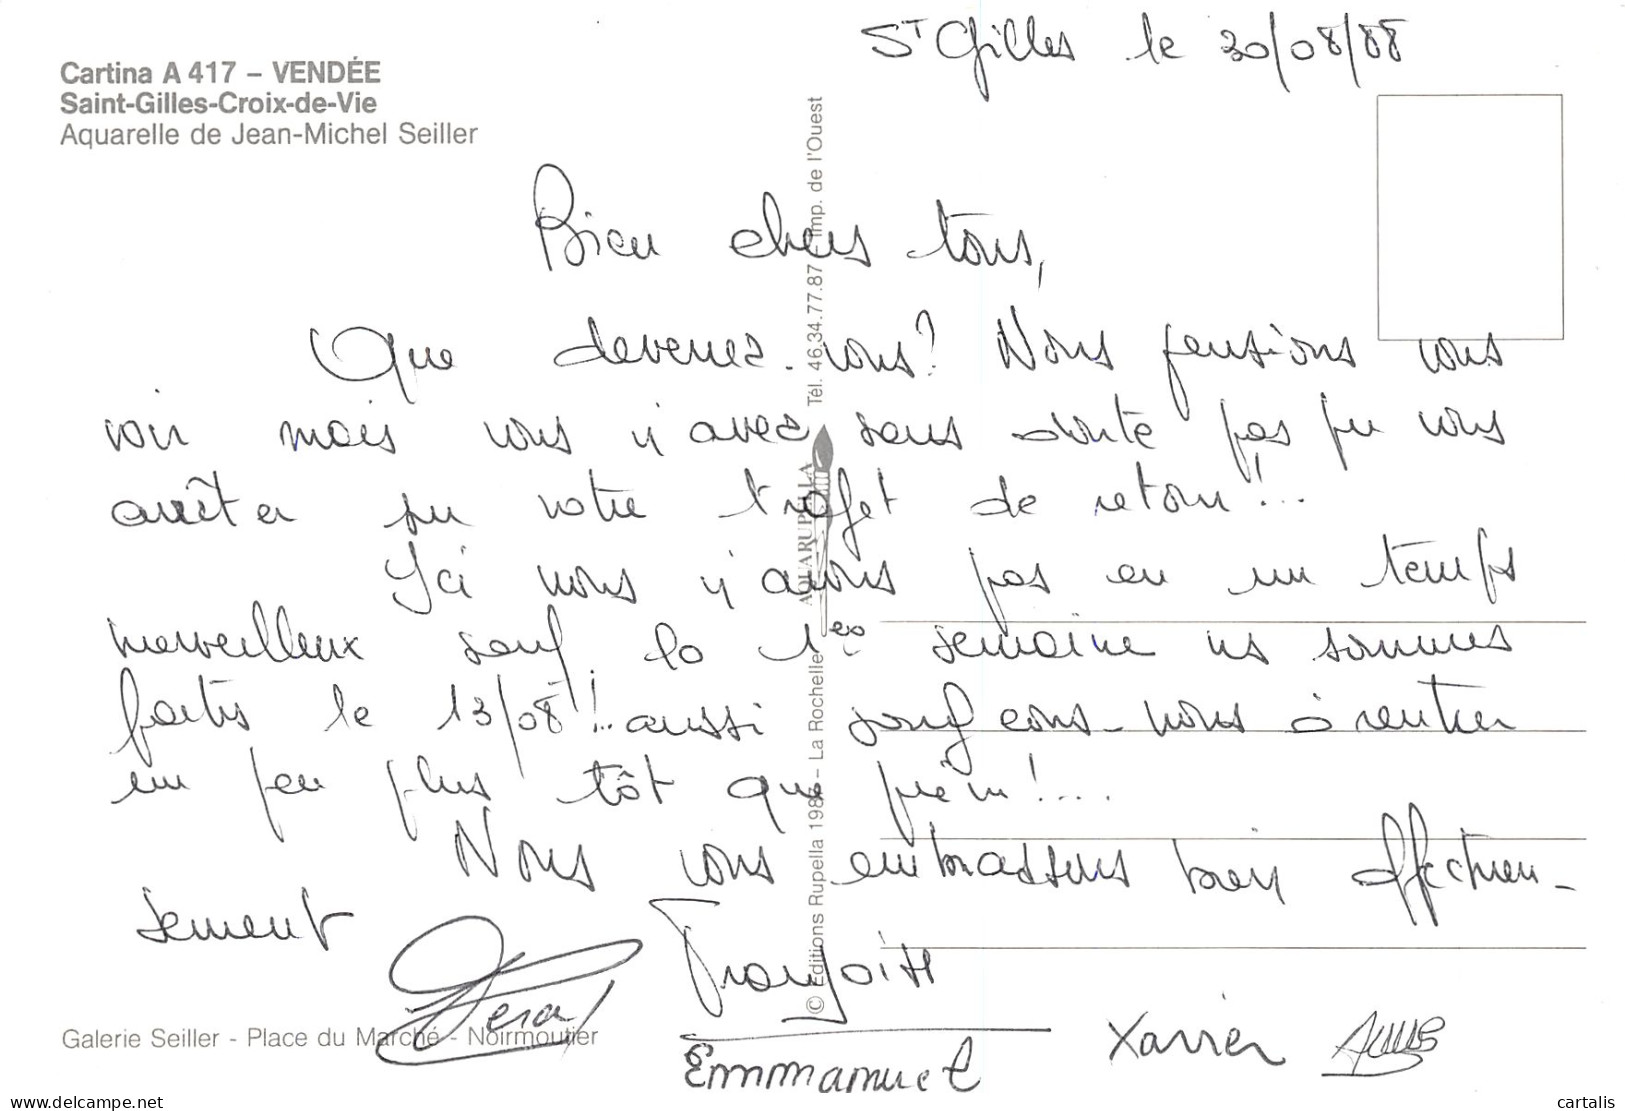 St Gilles le 20/08/88
Cartina A 417 – VENDÉE
Saint-Gilles-Croix-de-Vie
Aquarelle de Jean-Michel Seiller
Bien chers tous,
Que devenez-vous? Nous pensions vous
voir mais vous n'avez sans doute pas pu vous
arrêter sur votre trajet de retour!...
Ici nous n'avons pas eu un temps
merveilleux sauf la 1ère semaine ns sommes
partis le 13/08!.. aussi songeons-nous à rentrer
un peu plus tôt que prévu!....
Nous vous embrassons bien affectueu-
sement
Françoise
Emmanuel
Xavier
Galerie Seiller - Place du Marché - Noirmoutier
© Editions Rupella – La Rochelle
AQUARUPELLA
Tél. 46.34.77.87 Imp. de l'Ouest
cartalis
delcampe.com